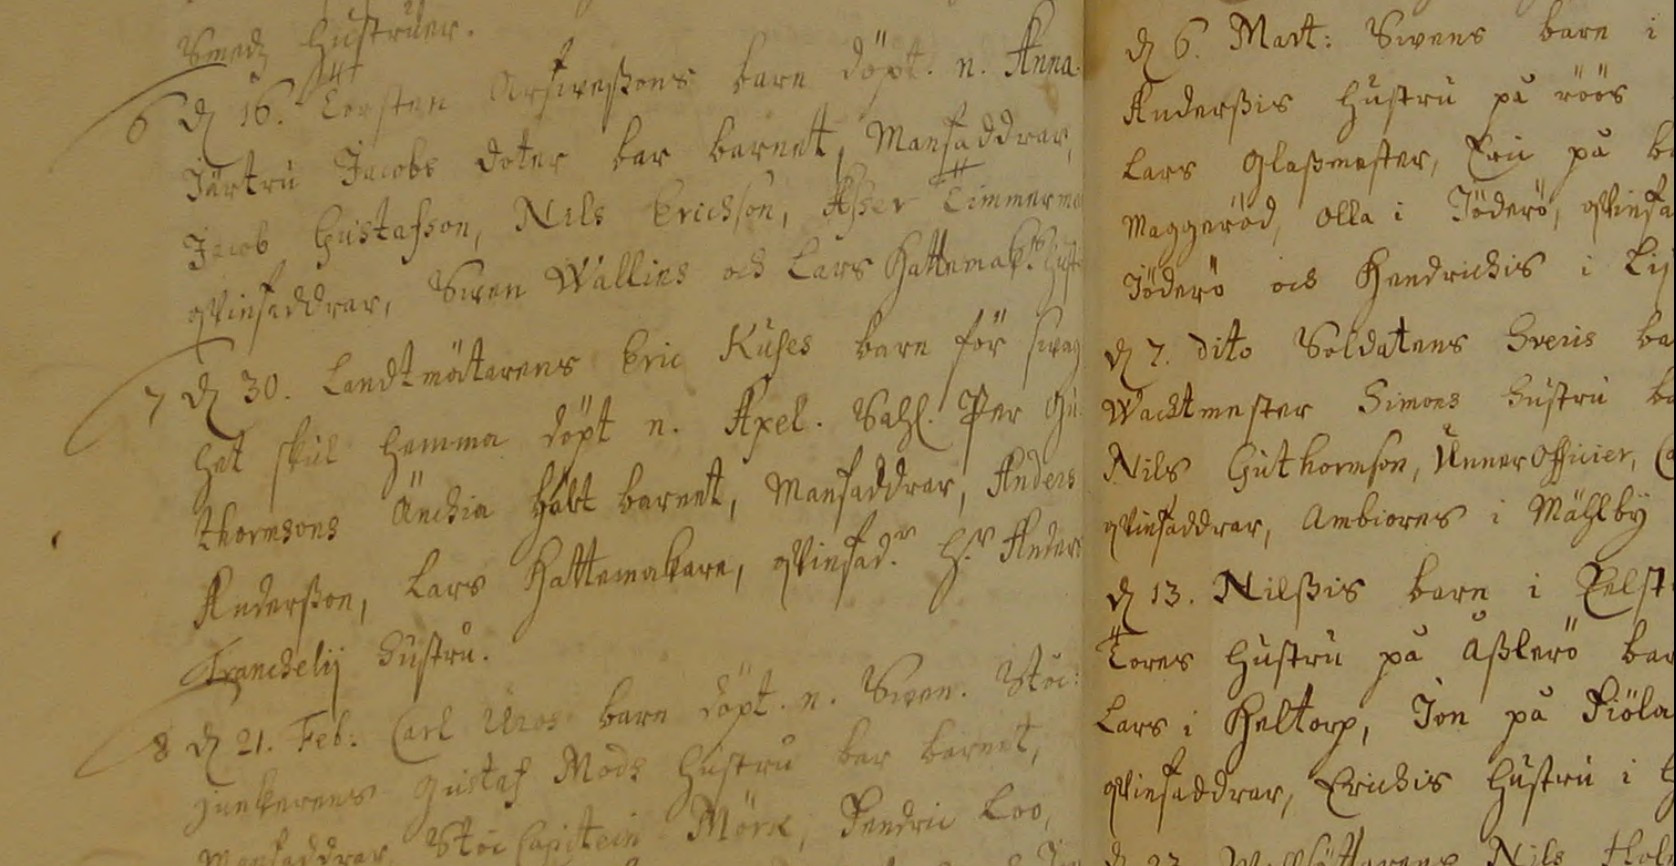 Smedz Hustruer.
6 d 16. Torsten Arfweßons barn döpt. n. Anna.
Järtru Jacobs doter bar barnet, Mansfaddrar,
Jacob Gustafson, Nils Erichson, Aßer Timmerma
qvinfaddrar, Swen Wallins och Lars Hattemak.rs Hust
7 d 30. Landtmätarens Eric Kuses barn för swag
het skul hemma döpt n. Axel. Sahl. Per Gu
thormsons Änchia hölt barnet, Mansfaddrar, Anders
Anderßon, Lars Hattemakare, qvinfad.r H.r Anders
Franchelij Hustru.
8 d 21. Feb: Carl Uros barn döpt. n. Swen. Stöc:
junkerens Gustaf Mods Hustru bar barnet,
Mansfaddrar Stöc Capitein Mörk, Fendric Loo,
d 6. Mart: Swens barn i
Anderßis Hustru på röös
Lars Glaßmester, Eric på
Maggeröd, Olla i Jöderö, qvinfa
Jöderö och Hendrichis i
d 7. dito Soldatens Svens ba
Wachtmester Simons Hustru ba
Nils Guthormson, UnnerOfficier,
qvinfaddrar, Ambiores i Mählby
d 13. Nilßis barn i
Tores Hustru på Aßlerö bar
Lars i Heltorp, Jon på Fiöla
qvinfaddrar, Erichis Hustru i
d 23. Nils